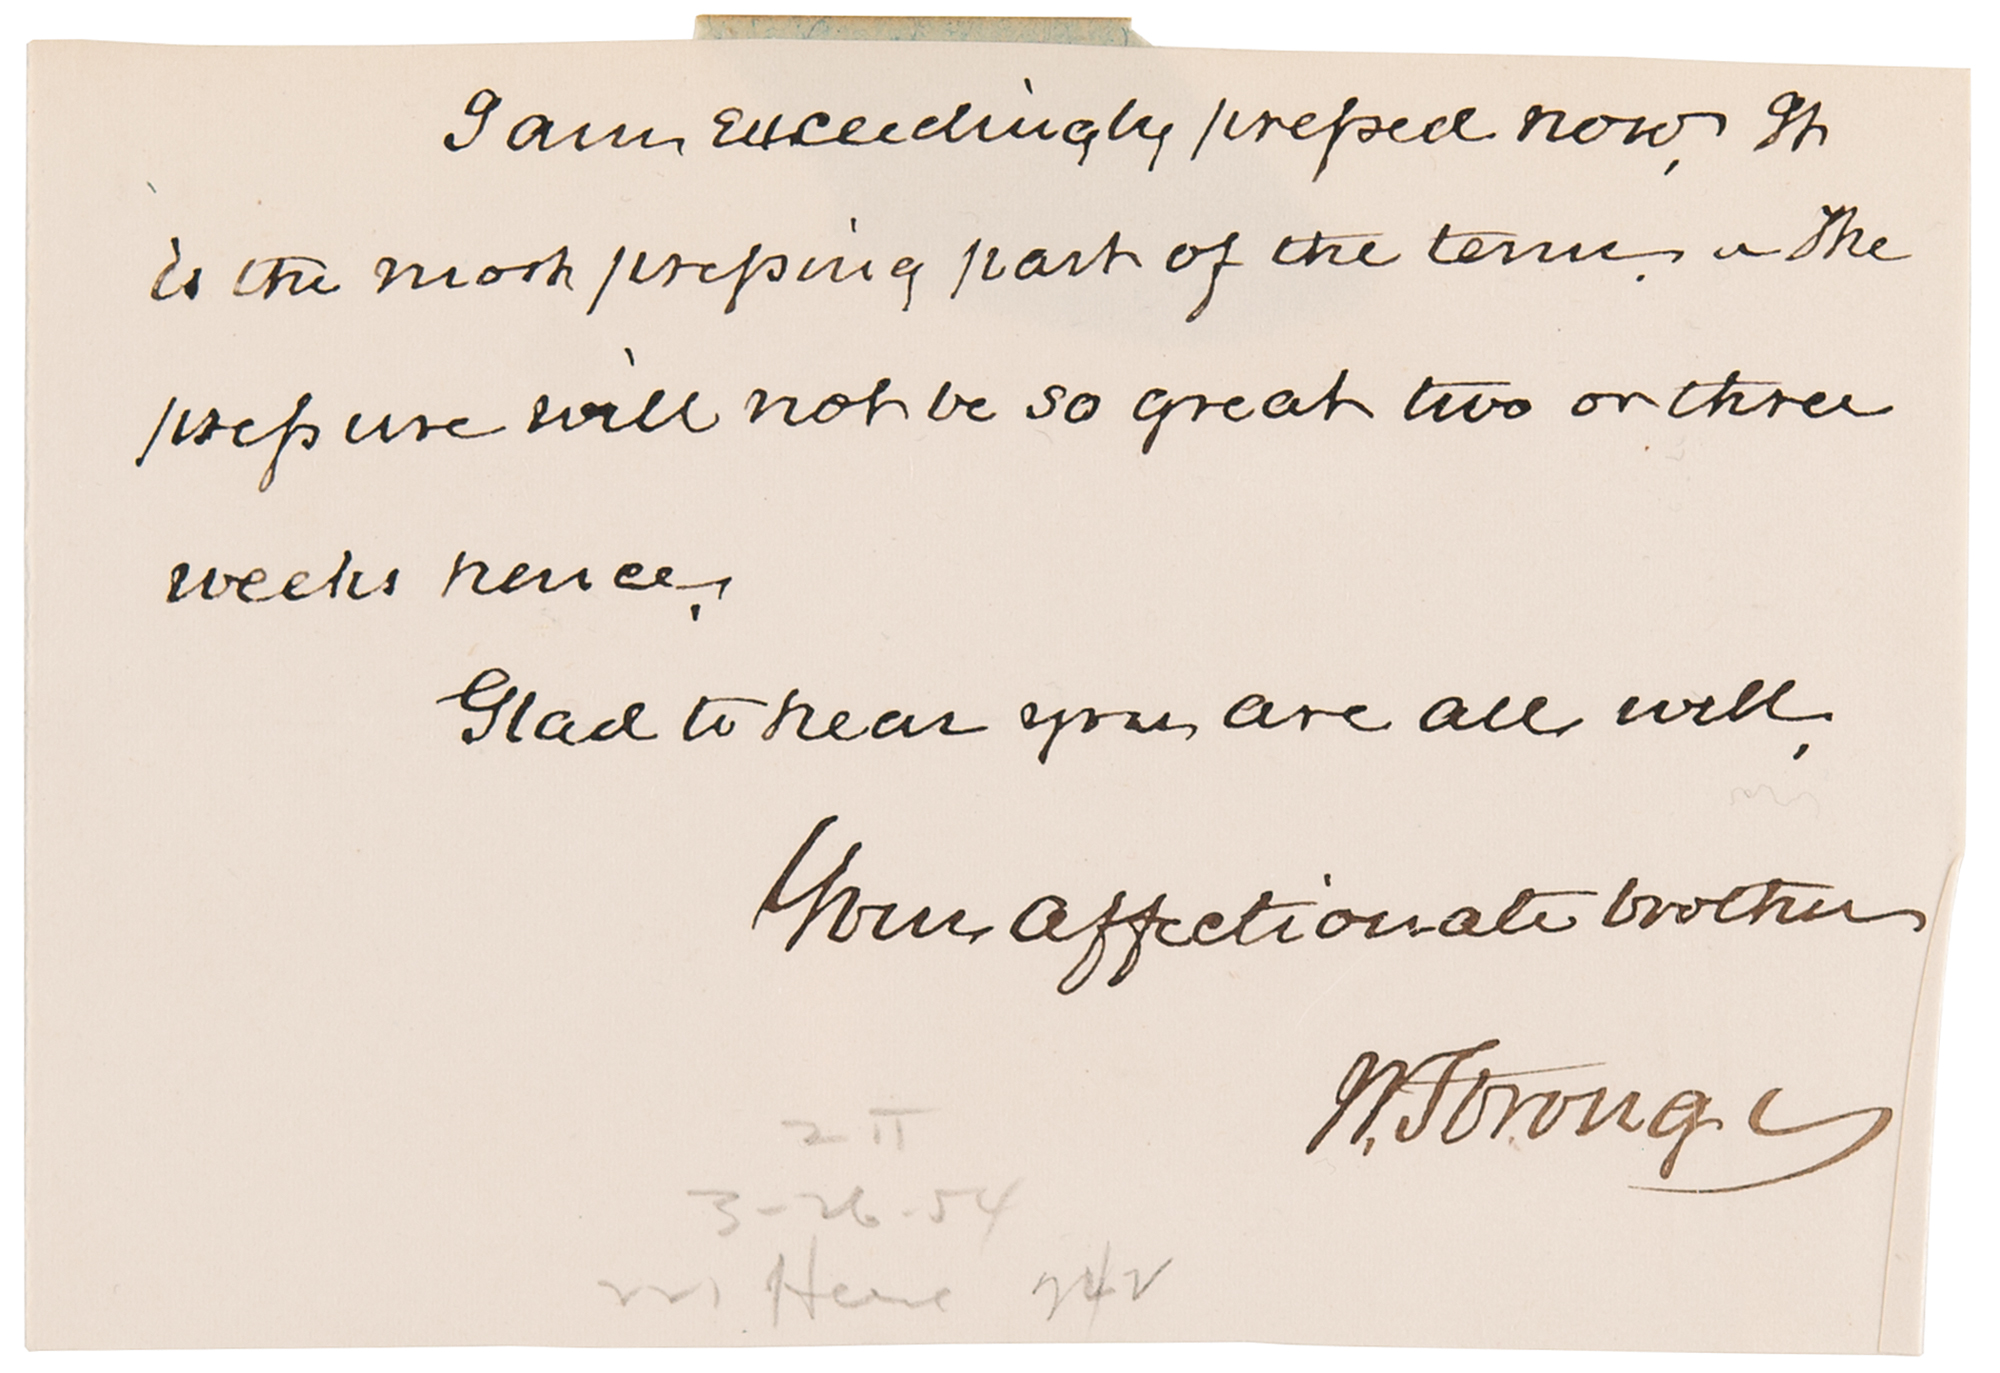 I am exceedingly pressed now, It
is the most pressing part of the term. The
pressure will not be so great two or three
weeks hence.
Glad to hear you are all well.
Your affectionate brother
W. Strong
3-26-54